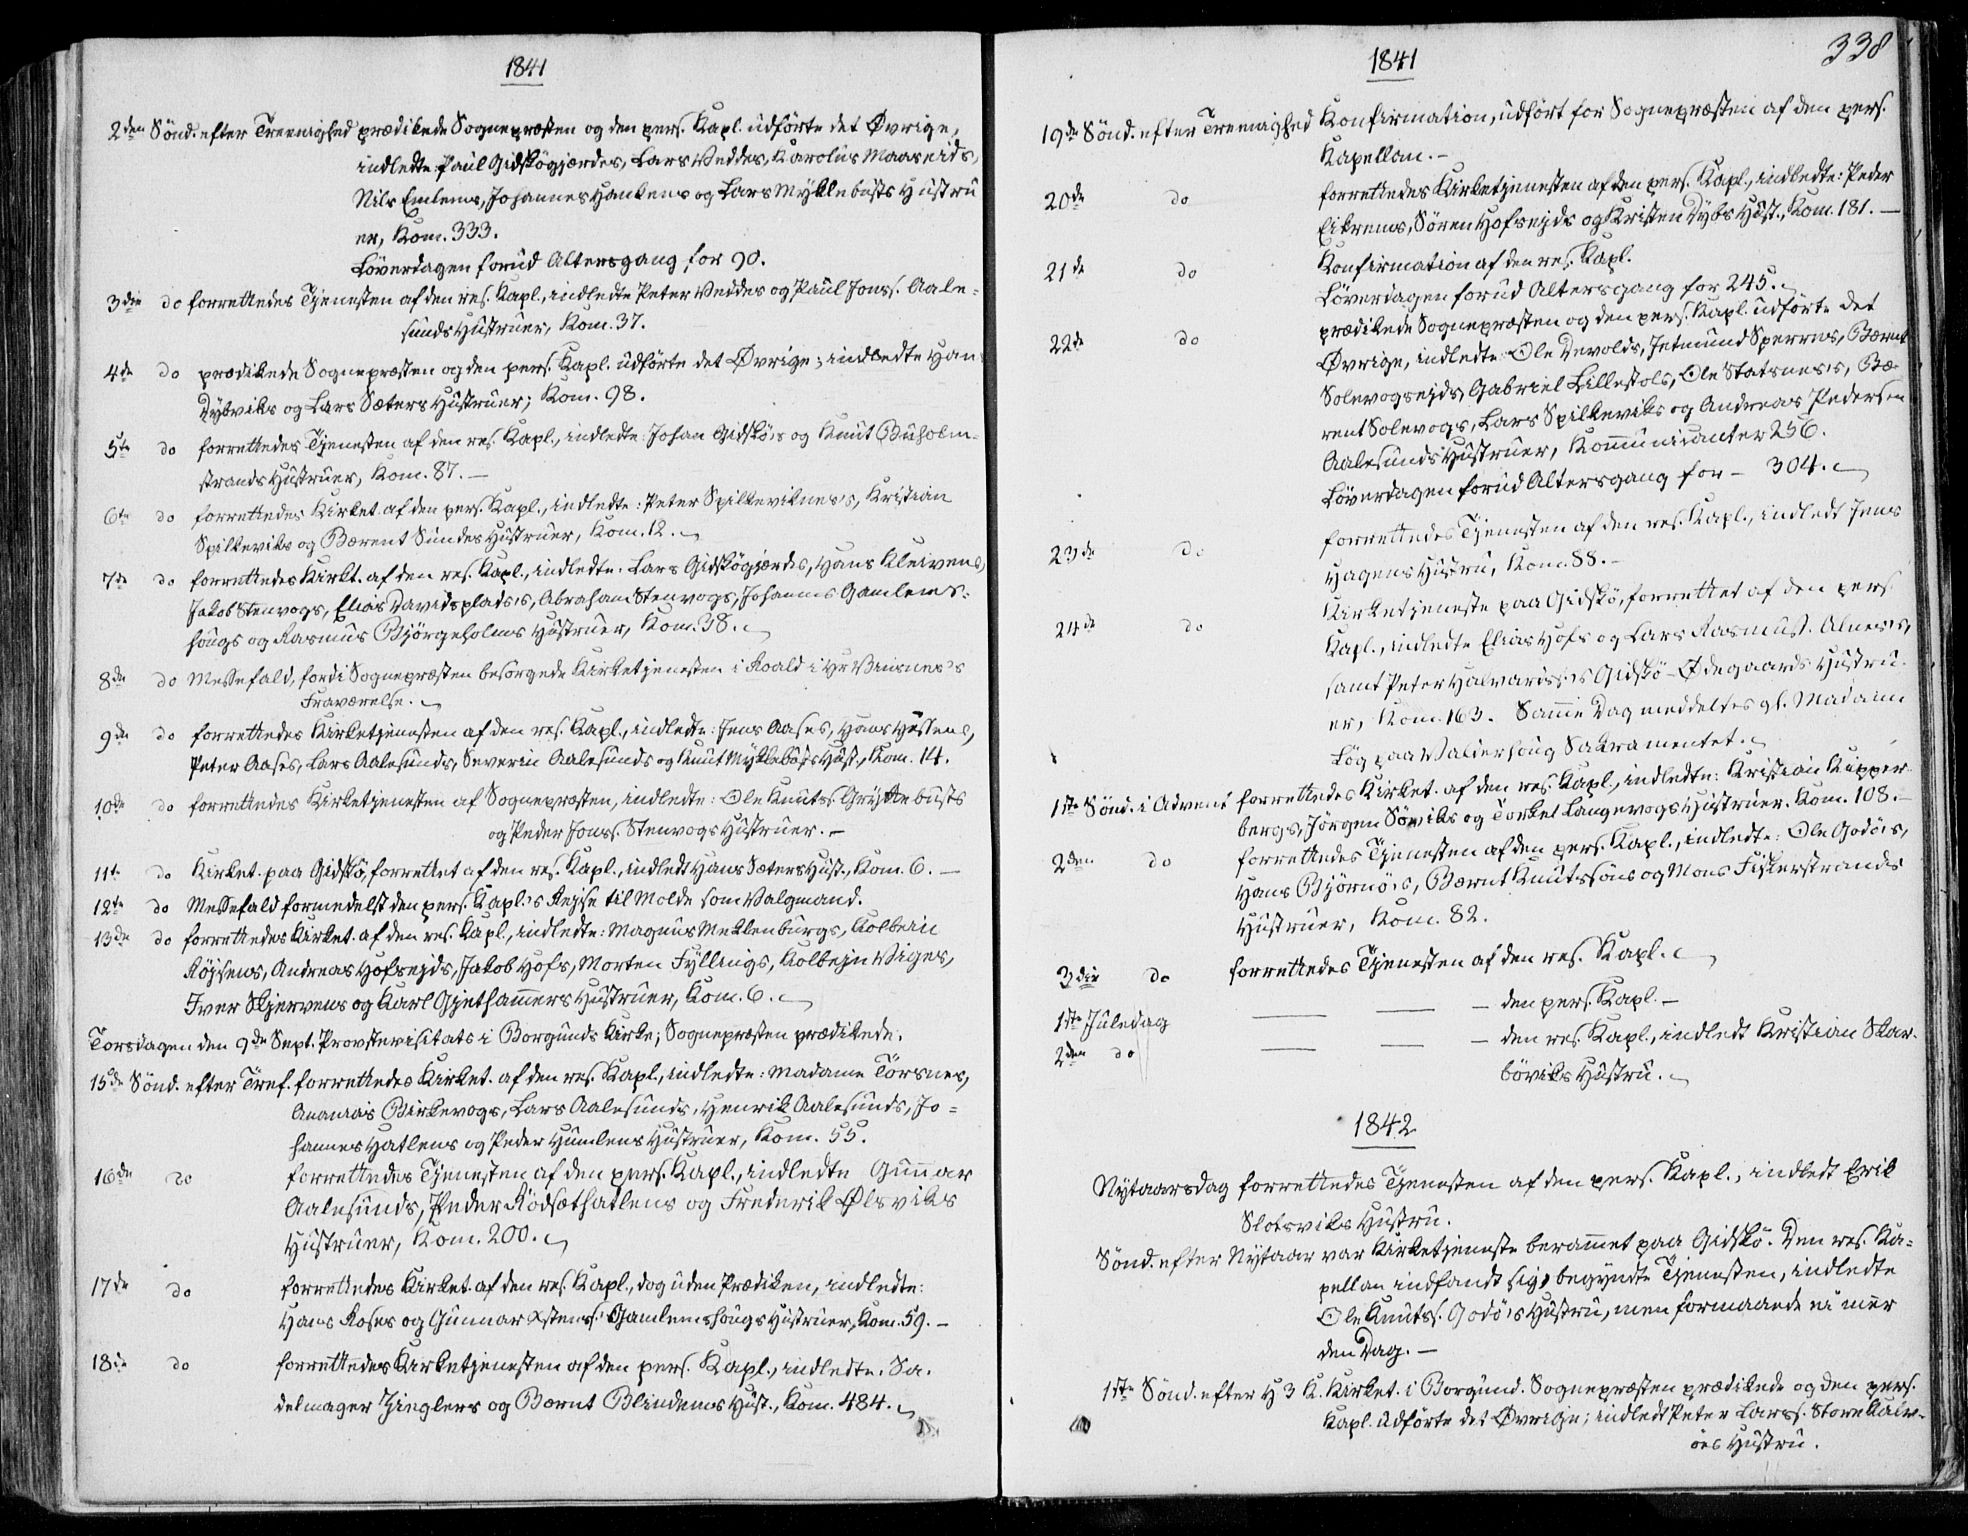 1841
2den Sönd. efter Treenighed prædikede Sognepræsten og den pers. Kapl. udförte det Øvrige,
indledte: Paul Gidskögjærdes, Lars Veddes, Karolus Maaseids,
Nils Emlems, Johannes Hankens og Lars Myklebusts Hustru
er, Kom. 333.
Löverdagen forud Altersgang for 90.
3die do forrettedes Tjenesten af den res. Kapl., indledte Peter Veddes og Paul Jonss. Aale-
sunds Hustruer, Kom. 37.
4de do prædikede Sognepræsten og den pers. Kapl. udförte det Øvrige; indledte Han
Dybviks og Lars Sæters Hustruer; Kom. 98.
5te do forrettedes Tjenesten af den res. Kapl., indledte: Johan Gidskö's og Knut Buholm-
strands Hustruer, Kom. 87. —
6te do forrettedes Kirket. af den pers. Kapl., indledte: Peter Spilkeviknes's, Kristian
Spilkeviks og Bærent Sundes Hustruer, Kom. 12.
7de do forrettedes Kirkt. af den res. Kapl., indledte: Lars Gidskögjærdes, Hans Kleivens,
Jakob Stenvogs, Elias Davidsplads's, Abraham Stenvogs, Johannes Gamlems-
hougs og Rasmus Björgeholms Hustruer, Kom. 38.
8de do Messefald, fordi Sognepræsten besorgede Kirketjenesten i Roald i Hr Buisnes's
Fraværelse.
9de do forrettedes Kirketjenesten af den res. Kapl., indledte: Jens Aases, Hans Hessens,
Peter Aases, Lars Aalesunds, Severin Aalesunds og Knut Myklebusts Hust., Kom. 14.
10de do forrettedes Kirketjenesten af Sognepræsten, indledte: Ole Knuts. Gryttebusts
og Peder Jonss. Stenvogs Hustruer. —
11te do Kirket. paa Gidskö, forrettet af den res. Kapl., indledt Hans Sæters Hust., Kom. 6. —
12te do Messefald formedelst den pers. Kapl.'s Rejse til Molde som Valgmand.
13de do forrettedes Kirket. af den res. Kapl., indledte: Magnus Meklenburgs, Kolbein
Röjsens, Andreas Hofsejds, Jakob Hofs, Morten Fyllings, Kolbejn Viges,
Iver Skjervens og Karl Gjethammers Hustruer, Kom. 6.
Torsdagen den 9de Sept. Provstevisitats i Borgunds Kirke; Sognepræsten prædikede.
15de Sönd. efter Tref. forrettedes Kirket. af den res. Kapl., indledte: Madame Törsnes,
Ananias Birkevogs, Lars Aalesunds, Henrik Aalesunds, Jo-
hannes Hatlems og Peder Humlens Hustruer, Kom. 55.
16de do forrettedes Tjenesten af den pers. Kapl., indledte Gunnar
Aalesunds, Peder Rödsæthatlens og Frederik Ølsviks
Hustruer, Kom. 200.
17de do forrettedes Kirket. af den res. Kapl., dog uden Prædiken, indledte:
Hans Roses og Gunnar Gamlemshougs Hustruer, Kom. 59. —
18de do forrettedes Kirketjenesten af den pers. Kapl., indledte: Sa-
delmager Zieglers og Bærnt Blindems Hust., Kom. 484.
338
1841
19de Sönd. efter Treenighed Konfirmation, udfört for Sognepræsten af den pers.
Kapellan. —
20de do forrettedes Kirketjenesten af den pers. Kapl., indledte: Peder
Eikrems, Sören Hofsejds og Kristen Dybs Hust., Kom. 181. —
21de do Konfirmation af den res. Kapl.
Löverdagen forud Altersgang for 245.
22de do prædikede Sognepræsten og den pers. Kapl. udförte det
Øvrige, indledte: Ole Devolds, Jetmund Sperres, Bærnt
Solevogsejds, Gabriel Lillestols, Ole Statsnes's, Bæ-
rent Solevogs, Lars Spilkeviks og Andreas Pedersen
Aalesunds Hustruer, Kommunicanter 256.
Löverdagen forud Altersgang for — 304.
23de do forrettedes Tjenesten af den res. Kapl., indledt Jens
Hagens Hustru, Kom. 88. —
24de do Kirketjeneste paa Gidskö, forrettet af den pers.
Kapl., indledte Elias Hofs og Lars Rasmuss. Alnes's,
samt Peter Halvards's Gidskö-Ødegaards Hustru-
er, Kom. 163. Samme Dag meddeltes gl. Madame
Lög paa Valderhoug Sakramentet.
1ste Sönd. i Advent forrettedes Kirket. af den res. Kapl., indledte: Kristian Kipper-
bergs, Jörgen Söviks og Torkel Langevogs Hustruer. Kom. 108. —
2den do forrettedes Tjenesten af den pers. Kapl., indledte: Ole Godö's,
Hans Björnö's, Bærnt Knutssöns og Mons Fiskerstrands
Hustruer, Kom. 82.
3die do forrettedes Tjenesten af den res. Kapl.
1ste Juledag — — — den pers. Kapl. —
2den do — — — den res. Kapl., indledt Kristian Skar-
böviks Hustru.
1842
Nytaarsdag forrettedes Tjenesten af den pers. Kapl., indledt Erik
Slotsviks Hustru.
Sönd. efter Nytaar var Kirketjeneste berammet paa Gidskö. Den res. Ka-
pellan indfandt sig, begyndte Tjenesten, indledte
Ole Knuts. Godö's Hustru, men formaaede ei mer
den Dag. —
1ste Sönd. efter H 3 K. Kirket. i Borgund. Sognepræsten prædikede og den pers.
Kapl. udförte det Øvrige; indledt Peter Larss. Store Kalv-
öes Hustru.